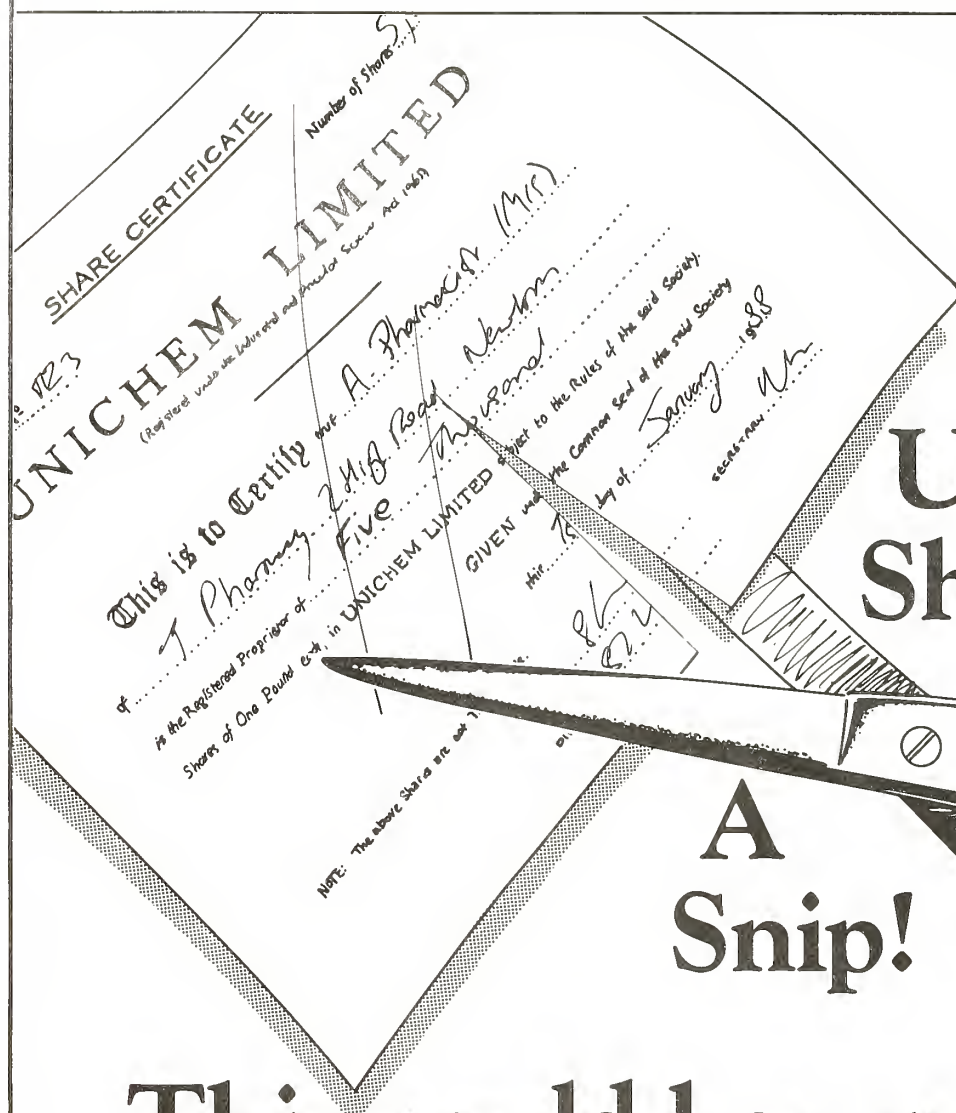 SHARE CERTIFICATE
Number of Shares
UNICHEM LIMITED
(Registered under the Industrial and Provident Societies Act 1965)
This is to Certify that A. Pharmacist (Mr)
of J Pharmacy 2 High Road Newtown
is the Registered Proprietor of Five Thousand
Shares of One Pound each, in UNICHEM LIMITED subject to the Rules of the said Society.
GIVEN under the Common Seal of the said Society
this day of January 1988
SECRETARY
NOTE: The above Shares are not
U
Sh
A
Snip!